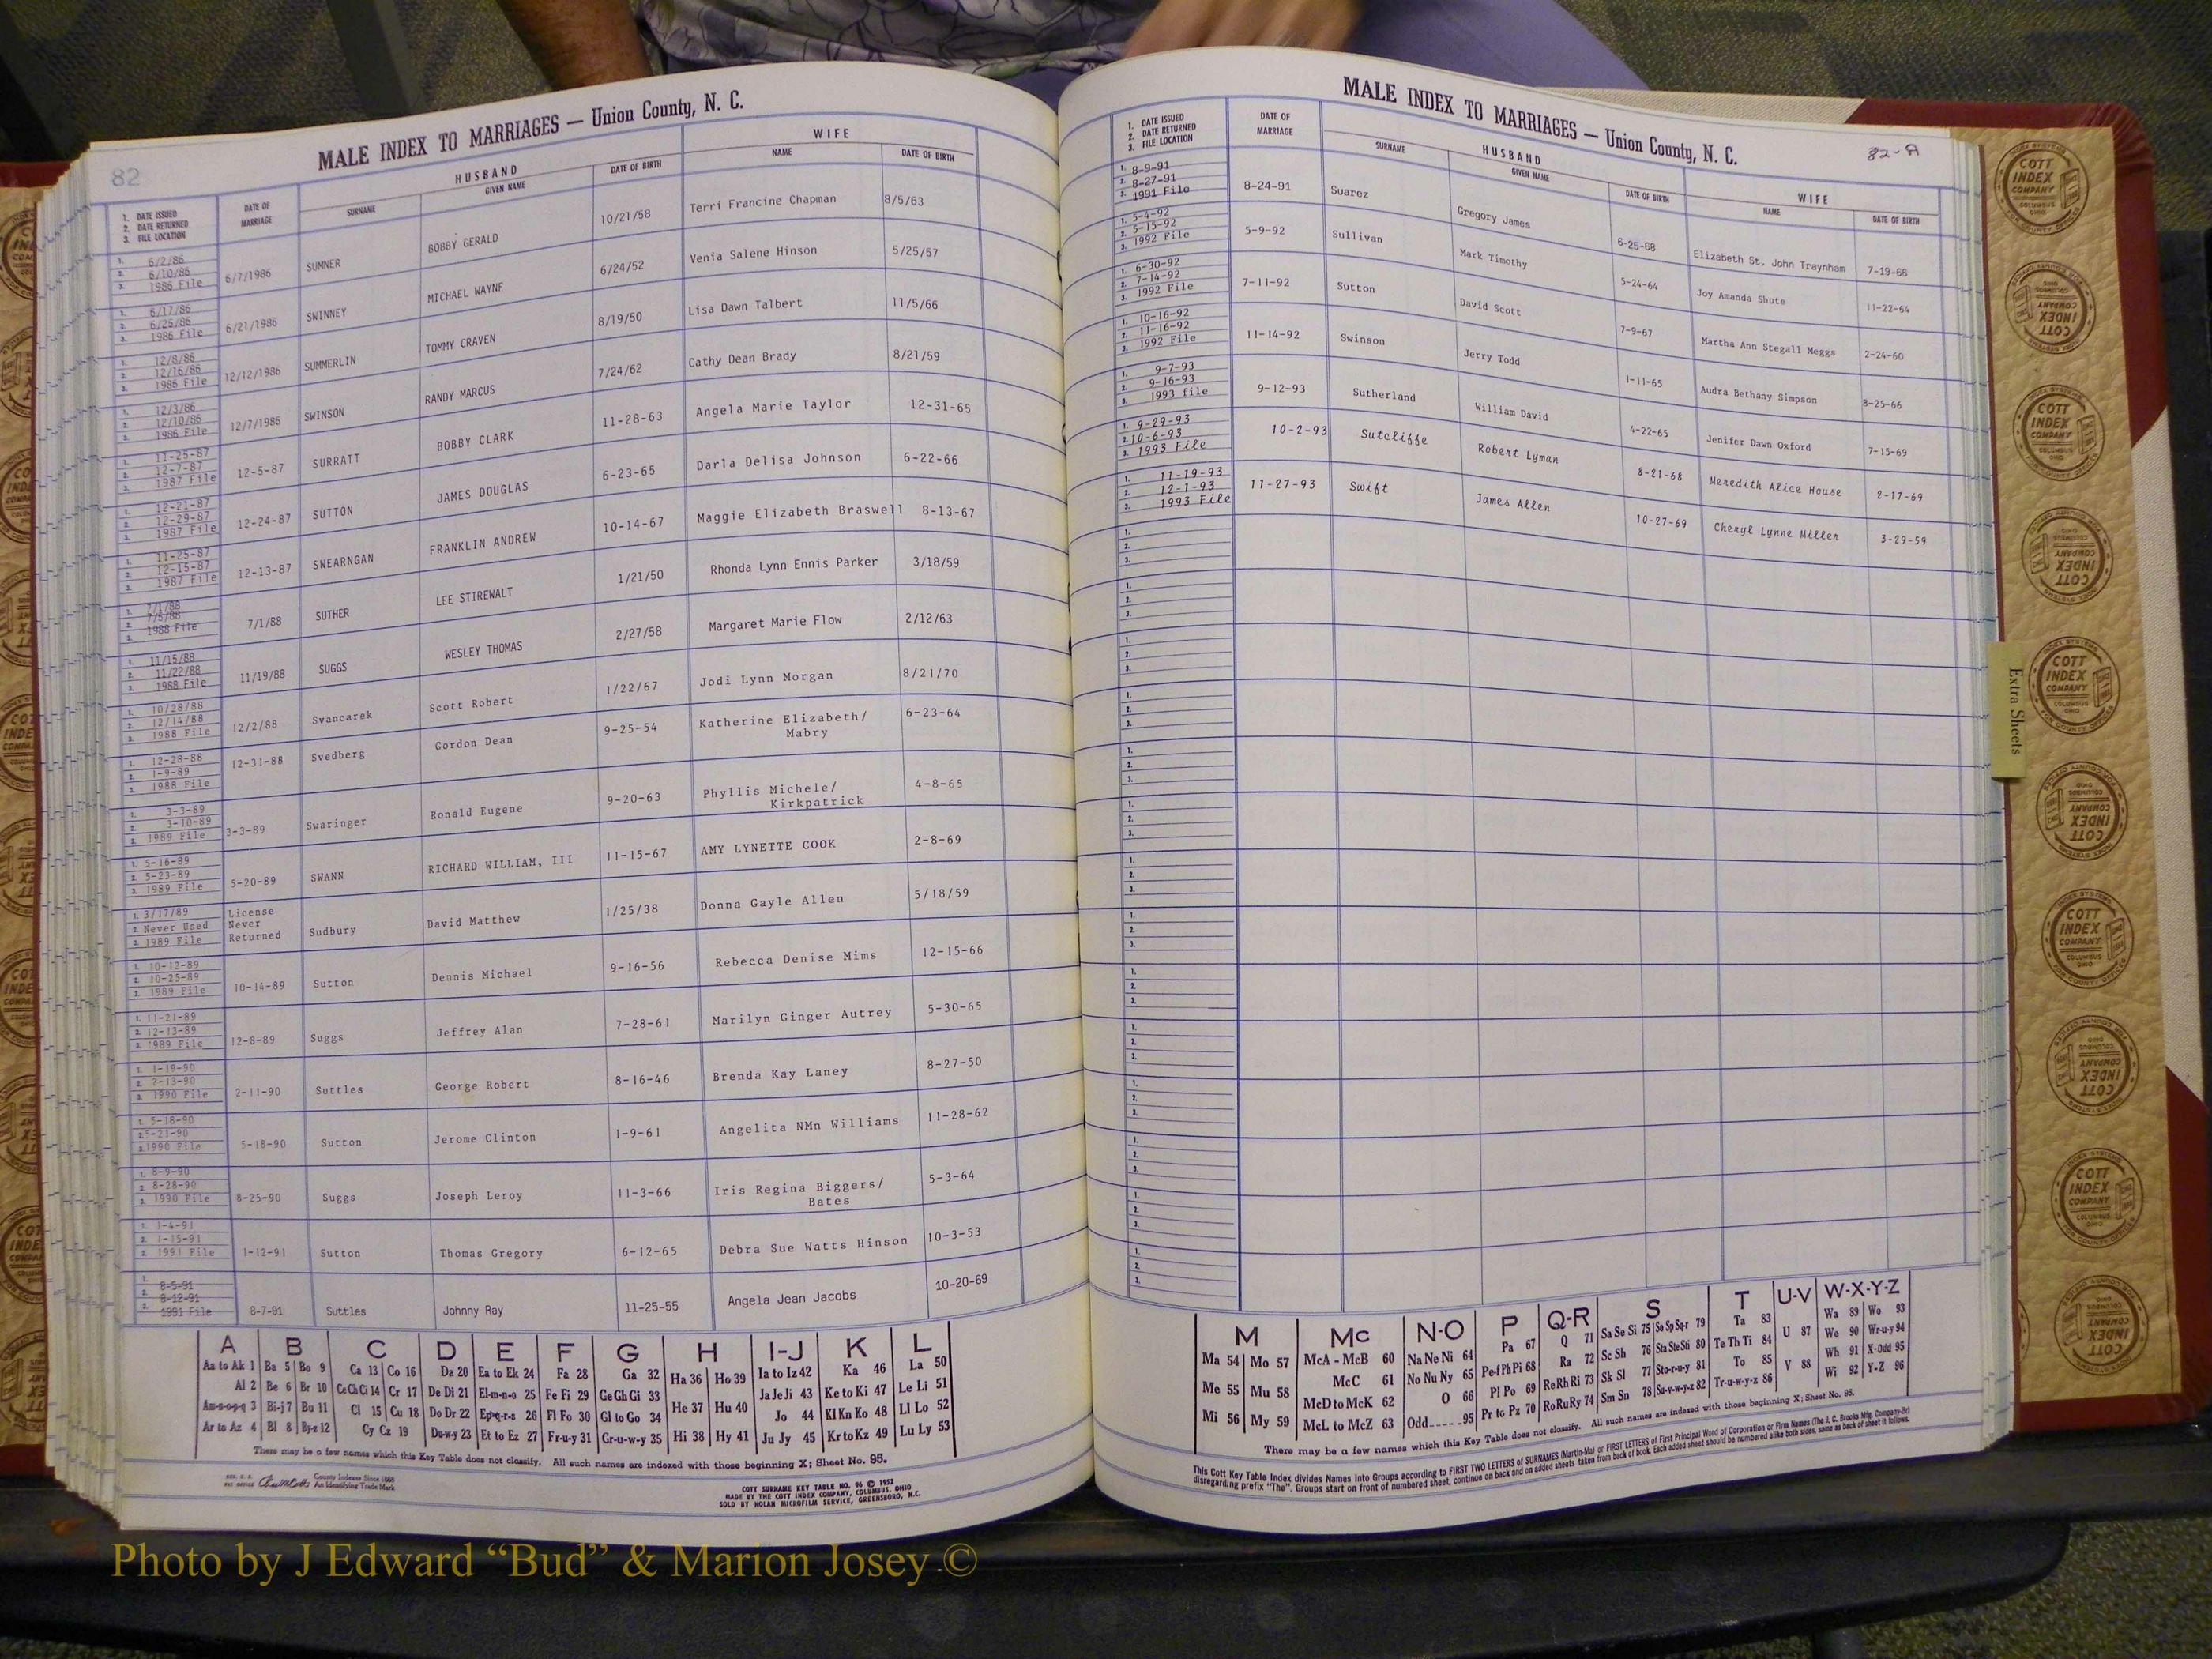 82
MALE INDEX TO MARRIAGES — Union County, N. C.
1. DATE ISSUED
2. DATE RETURNED
3. FILE LOCATION
DATE OF MARRIAGE
HUSBAND
SURNAME GIVEN NAME DATE OF BIRTH
WIFE
NAME DATE OF BIRTH
1. 6/2/86
2. 6/10/86
3. 1986 File
6/7/1986 SUMNER BOBBY GERALD 10/21/58 Terri Francine Chapman 8/5/63
1. 6/17/86
2. 6/25/86
3. 1986 File
6/21/1986 SWINNEY MICHAEL WAYNF 6/24/52 Venia Salene Hinson 5/25/57
1. 12/8/86
2. 12/16/86
3. 1986 File
12/12/1986 SUMMERLIN TOMMY CRAVEN 8/19/50 Lisa Dawn Talbert 11/5/66
1. 12/3/86
2. 12/10/86
3. 1986 File
12/7/1986 SWINSON RANDY MARCUS 7/24/62 Cathy Dean Brady 8/21/59
1. 11-25-87
2. 12-7-87
3. 1987 File
12-5-87 SURRATT BOBBY CLARK 11-28-63 Angela Marie Taylor 12-31-65
1. 12-21-87
2. 12-29-87
3. 1987 File
12-24-87 SUTTON JAMES DOUGLAS 6-23-65 Darla Delisa Johnson 6-22-66
1. 11-25-87
2. 12-15-87
3. 1987 File
12-13-87 SWEARNGAN FRANKLIN ANDREW 10-14-67 Maggie Elizabeth Braswell 8-13-67
1. 7/1/88
2. 7/5/88
3. 1988 File
7/1/88 SUTHER LEE STIREWALT 1/21/50 Rhonda Lynn Ennis Parker 3/18/59
1. 11/15/88
2. 11/22/88
3. 1988 File
11/19/88 SUGGS WESLEY THOMAS 2/27/58 Margaret Marie Flow 2/12/63
1. 10/28/88
2. 12/14/88
3. 1988 File
12/2/88 Svancarek Scott Robert 1/22/67 Jodi Lynn Morgan 8/21/70
1. 12-28-88
2. 1-9-89
3. 1988 File
12-31-88 Svedberg Gordon Dean 9-25-54 Katherine Elizabeth/ 6-23-64
Mabry
1. 3-3-89
2. 3-10-89
3. 1989 File
3-3-89 Swaringer Ronald Eugene 9-20-63 Phyllis Michele/ 4-8-65
Kirkpatrick
1. 5-16-89
2. 5-23-89
3. 1989 File
5-20-89 SWANN RICHARD WILLIAM, III 11-15-67 AMY LYNETTE COOK 2-8-69
1. 3/17/89
2. Never Used
3. 1989 File
License
Never
Returned
Sudbury David Matthew 1/25/38 Donna Gayle Allen 5/18/59
1. 10-12-89
2. 10-25-89
3. 1989 File
10-14-89 Sutton Dennis Michael 9-16-56 Rebecca Denise Mims 12-15-66
1. 11-21-89
2. 12-13-89
3. 1989 File
12-8-89 Suggs Jeffrey Alan 7-28-61 Marilyn Ginger Autrey 5-30-65
1. 1-19-90
2. 2-13-90
3. 1990 File
2-11-90 Suttles George Robert 8-16-46 Brenda Kay Laney 8-27-50
1. 5-18-90
2. 5-21-90
3. 1990 File
5-18-90 Sutton Jerome Clinton 1-9-61 Angelita NMn Williams 11-28-62
1. 8-9-90
2. 8-28-90
3. 1990 File
8-25-90 Suggs Joseph Leroy 11-3-66 Iris Regina Biggers/ 5-3-64
Bates
1. 1-4-91
2. 1-15-91
3. 1991 File
1-12-91 Sutton Thomas Gregory 6-12-65 Debra Sue Watts Hinson 10-3-53
1. 8-5-91
2. 8-12-91
3. 1991 File
8-7-91 Suttles Johnny Ray 11-25-55 Angela Jean Jacobs 10-20-69
A B C D E F G H I-J K L
Aa to Ak 1 Ba 5 Bo 9 Ca 13 Co 16 Da 20 Ea to Ek 24 Fa 28 Ga 32 Ha 36 Ho 39 Ia to Iz 42 Ka 46 La 50
Al 2 Be 6 Br 10 Ce Ch Ci 14 Cr 17 De Di 21 El-m-n-o 25 Fe Fi 29 Ge Gh Gi 33 He 37 Hu 40 Ja Je Ji 43 Ke to Ki 47 Le Li 51
Am-n-o-p-q 3 Bi-j 7 Bu 11 Cl 15 Cu 18 Do Dr 22 Ep-q-r-s 26 Fl Fo 30 Gl to Go 34 Hi 38 Hy 41 Jo 44 Kl Kn Ko 48 Ll Lo 52
Ar to Az 4 Bl 8 By-z 12 Cy Cz 19 Du-w-y 23 Et to Ez 27 Fr-u-y 31 Gr-u-w-y 35 Ju Jy 45 Kr to Kz 49 Lu Ly 53
There may be a few names which this Key Table does not classify. All such names are indexed with those beginning X; Sheet No. 95.
County Indexes Since 1888
An Identifying Trade Mark
COTT SURNAME KEY TABLE NO. 96 © 1952
MADE BY THE COTT INDEX COMPANY, COLUMBUS, OHIO
SOLD BY NOLAN MICROFILM SERVICE, GREENSBORO, N.C.
MALE INDEX TO MARRIAGES — Union County, N. C.
82-A
1. DATE ISSUED
2. DATE RETURNED
3. FILE LOCATION
DATE OF MARRIAGE
HUSBAND
SURNAME GIVEN NAME DATE OF BIRTH
WIFE
NAME DATE OF BIRTH
1. 8-9-91
2. 8-27-91
3. 1991 File
8-24-91 Suarez Gregory James 6-25-68 Elizabeth St. John Traynham 7-19-66
1. 5-4-92
2. 5-15-92
3. 1992 File
5-9-92 Sullivan Mark Timothy 5-24-64 Joy Amanda Shute 11-22-64
1. 6-30-92
2. 7-14-92
3. 1992 File
7-11-92 Sutton David Scott 7-9-67 Martha Ann Stegall Meggs 2-24-60
1. 10-16-92
2. 11-16-92
3. 1992 File
11-14-92 Swinson Jerry Todd 1-11-65 Audra Bethany Simpson 8-25-66
1. 9-7-93
2. 9-16-93
3. 1993 file
9-12-93 Sutherland William David 4-22-65 Jenifer Dawn Oxford 7-15-69
1. 9-29-93
2. 10-6-93
3. 1993 File
10-2-93 Sutcliffe Robert Lyman 8-21-68 Meredith Alice House 2-17-69
1. 11-19-93
2. 12-1-93
3. 1993 File
11-27-93 Swift James Allen 10-27-69 Cheryl Lynne Miller 3-29-59
M Mc N-O P Q-R S T U-V W-X-Y-Z
Ma 54 Mo 57 McA - McB 60 Na Ne Ni 64 Pa 67 Q 71 Sa Se Si 75 So Sp Sq-r 79 Ta 83 U 87 Wa 89 Wo 93
Me 55 Mu 58 McC 61 No Nu Ny 65 Pe-f Ph Pi 68 Ra 72 Sc Sh 76 Sta Ste Sti 80 Te Th Ti 84 V 88 We 90 Wr-u-y 94
Mi 56 My 59 McD to McK 62 O 66 Pl Po 69 Re Rh Ri 73 Sk Sl 77 Sto-r-u-y 81 To 85 Wh 91 X-Odd 95
McL to McZ 63 Odd 95 Pr to Pz 70 Ro Ru Ry 74 Sm Sn 78 Su-v-w-y-z 82 Tr-u-w-y-z 86 Wi 92 Y-Z 96
There may be a few names which this Key Table does not classify. All such names are indexed with those beginning X; Sheet No. 95.
This Cott Key Table Index divides Names Into Groups according to FIRST TWO LETTERS of SURNAMES (Martin-Ma) or FIRST LETTERS of First Principal Word of Corporation or Firm Names (The J. C. Brooks Mfg. Company-Br)
disregarding prefix "The". Groups start on front of numbered sheet, continue on back and on added sheets taken from back of book. Each added sheet should be numbered alike both sides, same as back of sheet it follows.
Extra Sheets
COTT INDEX COMPANY COLUMBUS OHIO
Photo by J Edward “Bud” & Marion Josey ©